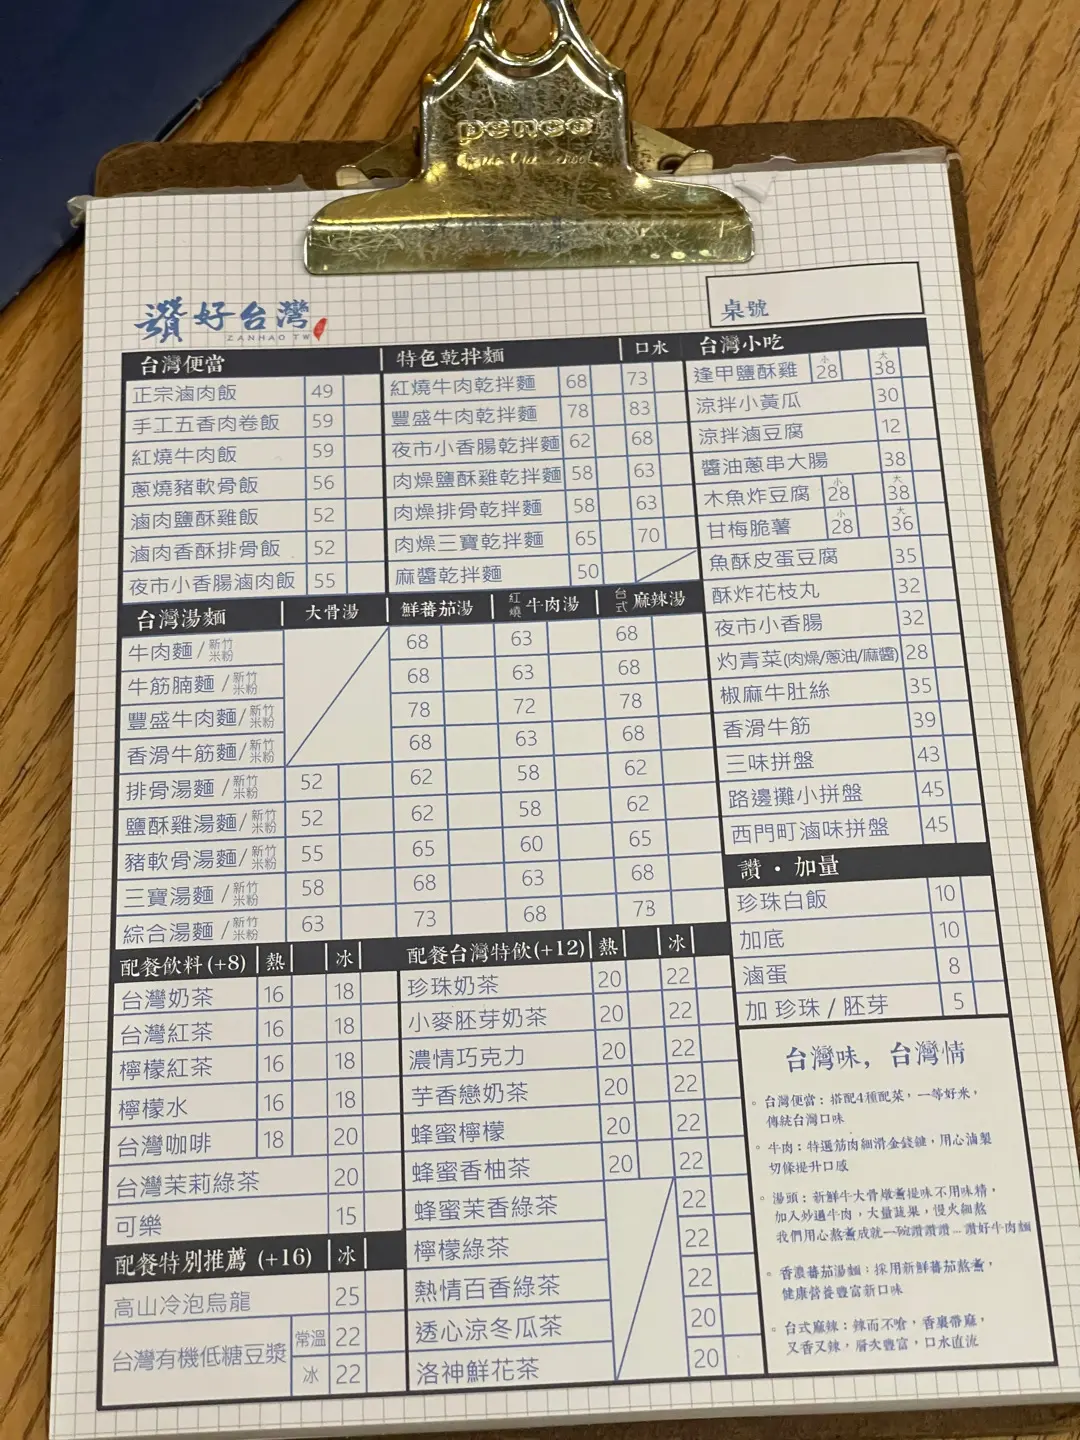 penco
讚好台灣
ZANHAO TW
桌號
台灣便當
正宗滷肉飯 49
手工五香肉卷飯 59
紅燒牛肉飯 59
蔥燒豬軟骨飯 56
滷肉鹽酥雞飯 52
滷肉香酥排骨飯 52
夜市小香腸滷肉飯 55
特色乾拌麵 口水
紅燒牛肉乾拌麵 68 73
豐盛牛肉乾拌麵 78 83
夜市小香腸乾拌麵 62 68
肉燥鹽酥雞乾拌麵 58 63
肉燥排骨乾拌麵 58 63
肉燥三寶乾拌麵 65 70
麻醬乾拌麵 50
台灣小吃
逢甲鹽酥雞 小28 大38
涼拌小黃瓜 30
涼拌滷豆腐 12
醬油蔥串大腸 38
木魚炸豆腐 小28 大38
甘梅脆薯 小28 大36
魚酥皮蛋豆腐 35
酥炸花枝丸 32
夜市小香腸 32
灼青菜(肉燥/蔥油/麻醬) 28
椒麻牛肚絲 35
香滑牛筋 39
三味拼盤 43
路邊攤小拼盤 45
西門町滷味拼盤 45
台灣湯麵 大骨湯 鮮蕃茄湯 紅燒牛肉湯 台式麻辣湯
牛肉麵/新竹米粉 68 63 68
牛筋腩麵/新竹米粉 68 63 68
豐盛牛肉麵/新竹米粉 78 72 78
香滑牛筋麵/新竹米粉 68 63 68
排骨湯麵/新竹米粉 52 62 58 62
鹽酥雞湯麵/新竹米粉 52 62 58 62
豬軟骨湯麵/新竹米粉 55 65 60 65
三寶湯麵/新竹米粉 58 68 63 68
綜合湯麵/新竹米粉 63 73 68 73
讚・加量
珍珠白飯 10
加底 10
滷蛋 8
加 珍珠 / 胚芽 5
配餐飲料(+8) 熱 冰
台灣奶茶 16 18
台灣紅茶 16 18
檸檬紅茶 16 18
檸檬水 16 18
台灣咖啡 18 20
台灣茉莉綠茶 20
可樂 15
配餐特別推薦 (+16) 冰
高山冷泡烏龍 25
台灣有機低糖豆漿 常溫 22
冰 22
配餐台灣特飲(+12) 熱 冰
珍珠奶茶 20 22
小麥胚芽奶茶 20 22
濃情巧克力 20 22
芋香戀奶茶 20 22
蜂蜜檸檬 20 22
蜂蜜香柚茶 20 22
蜂蜜茉香綠茶 22
檸檬綠茶 22
熱情百香綠茶 22
透心涼冬瓜茶 20
洛神鮮花茶 20
台灣味，台灣情
台灣便當：搭配4種配菜，一等好米，
傳統台灣口味
牛肉：特選筋肉細滑金錢鍵，用心滷製
切條提升口感
湯頭：新鮮牛大骨燉煮提味不用味精，
加入炒過牛肉，大量蔬果，慢火細熬
我們用心熬煮成就一碗讚讚讚...讚好牛肉麵
香濃蕃茄湯麵：採用新鮮蕃茄熬煮，
健康營養豐富新口味
台式麻辣：辣而不嗆，香裏帶麻，
又香又辣，層次豐富，口水直流